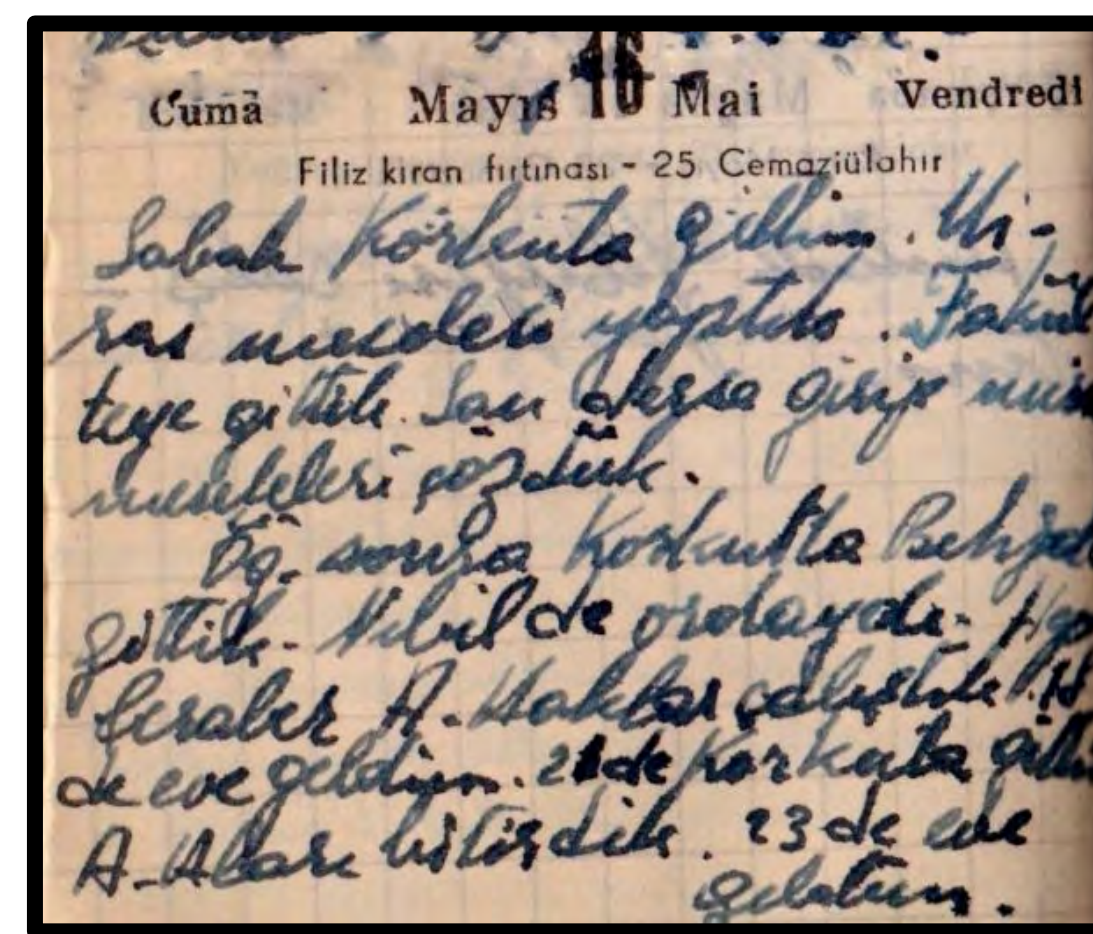 Cuma Mayıs 16 Mai Vendredi
Filiz kıran fırtınası - 25 Cemaziülahır
Sabah Korkuta gittim. Mi-
ras meselesi yaptık. Fakül
teye gittik. Son derse girip
meseleleri çözdük.
Öğ. sonra Korkutla Behçet
gittik. Nibil de ordaydı.
beraber A. Haklar çalıştık.
de eve geldim. 21 de Korkuta
bitirdik. 23 de eve
geldim.